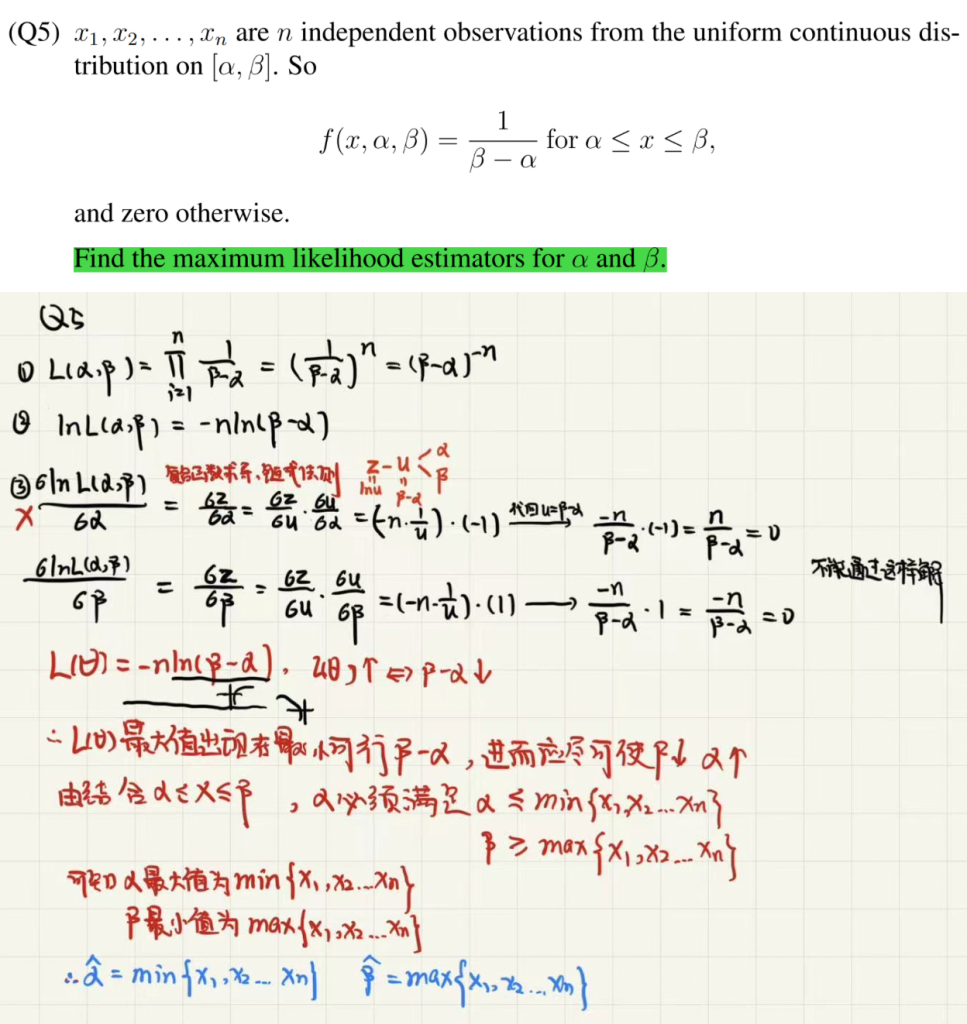 (Q5) x₁, x₂, . . . , xₙ are n independent observations from the uniform continuous dis-
tribution on [α, β]. So
f(x, α, β) = 1/(β − α) for α ≤ x ≤ β,
and zero otherwise.
Find the maximum likelihood estimators for α and β.
Q5
① L(α,β) = ∏ᵢ₌₁ⁿ 1/(β-α) = (1/(β-α))ⁿ = (β-α)⁻ⁿ
② lnL(α,β) = -nln(β-α)
复合函数求导、链式法则 z-u<α β
lnu β-α
③ × δlnL(α,β)/δα = δz/δα = δz/δu · δu/δα = (-n·1/u)·(-1) 代回u=β-α → -n/(β-α)·(-1) = n/(β-α) = 0
不能通过这样解
δlnL(α,β)/δβ = δz/δβ = δz/δu · δu/δβ = (-n·1/u)·(1) → -n/(β-α)·1 = -n/(β-α) = 0
L(θ) = -nln(β-α), ↑ ⇔ β-α↓
∴ L(θ)最大值出现在最小可行β-α，进而应尽可使β↓ α↑
由结合α≤X≤β，α必须满足α ≤ min{x₁,x₂...xₙ}
β ≥ max{x₁,x₂...xₙ}
可知α最大值为min{x₁,x₂...xₙ}
β最小值为max{x₁,x₂...xₙ}
∴ α̂ = min{x₁,x₂...xₙ} β̂ = max{x₁,x₂...xₙ}